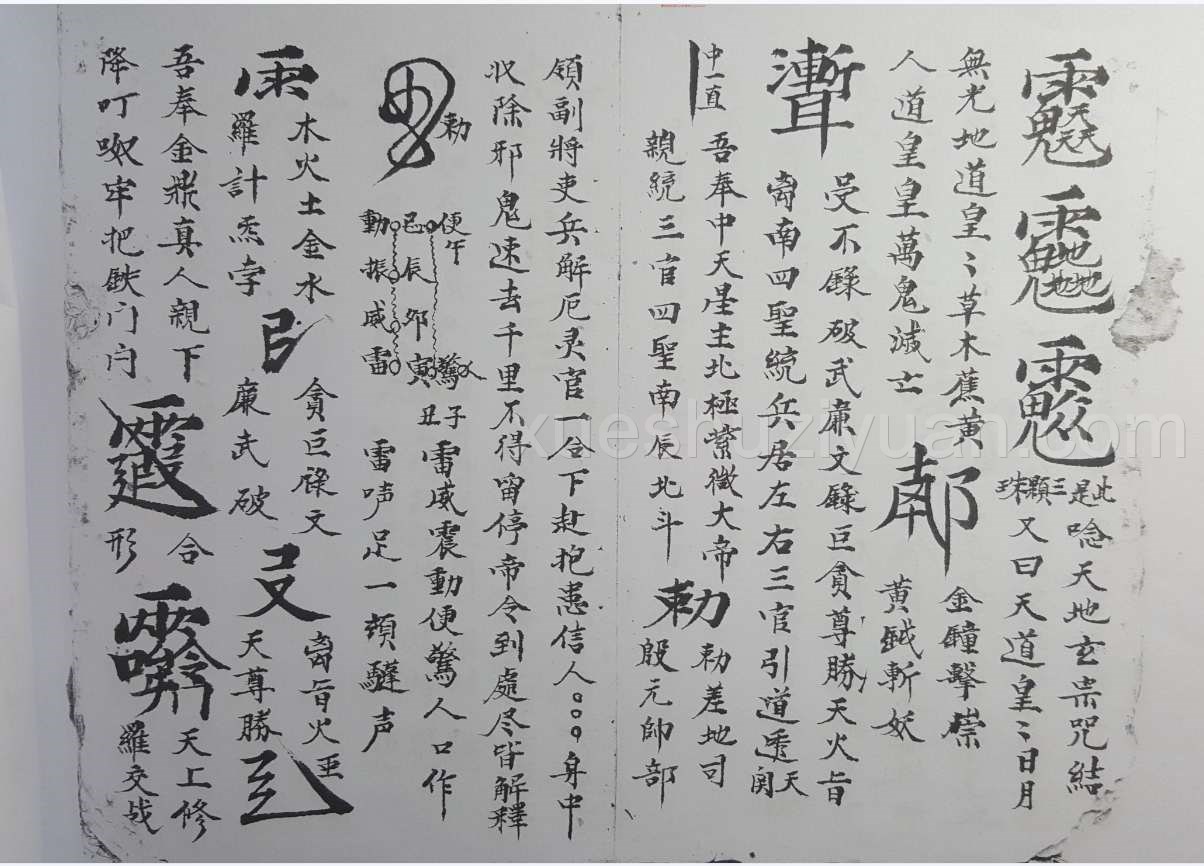 此是三顆珠
唸天地玄宗咒結
又曰天道皇〻日月
無光地道皇〻草木蕉黄
人道皇皇萬鬼滅亡
金鐘擊崇
黄鉞斬妖
受不籙破武廉文籙巨貪尊勝天火旨
离南四聖統兵居左右三官引道透天関
中一直
吾奉中天星主北極紫微大帝
親統三官四聖南辰北斗
勅
勅差地司
殷元帥部
領副將吏兵解厄灵官一合下赴抱患信人。。。身中
收除邪鬼速去千里不得留停帝令到處尽皆解釋
勅
便午
巳辰卯寅
丑子
驚
動振威雷
雷威震動便驚人口作
雷声足一頓驉声
雨
木火土金水
羅計炁孛
貪巨祿文
廉武破
离旨火
天尊勝
吾奉金鼎真人親下
降叮呶牢把鉄门闩
合
形
天上修
羅交战
xueshuziyuan.com